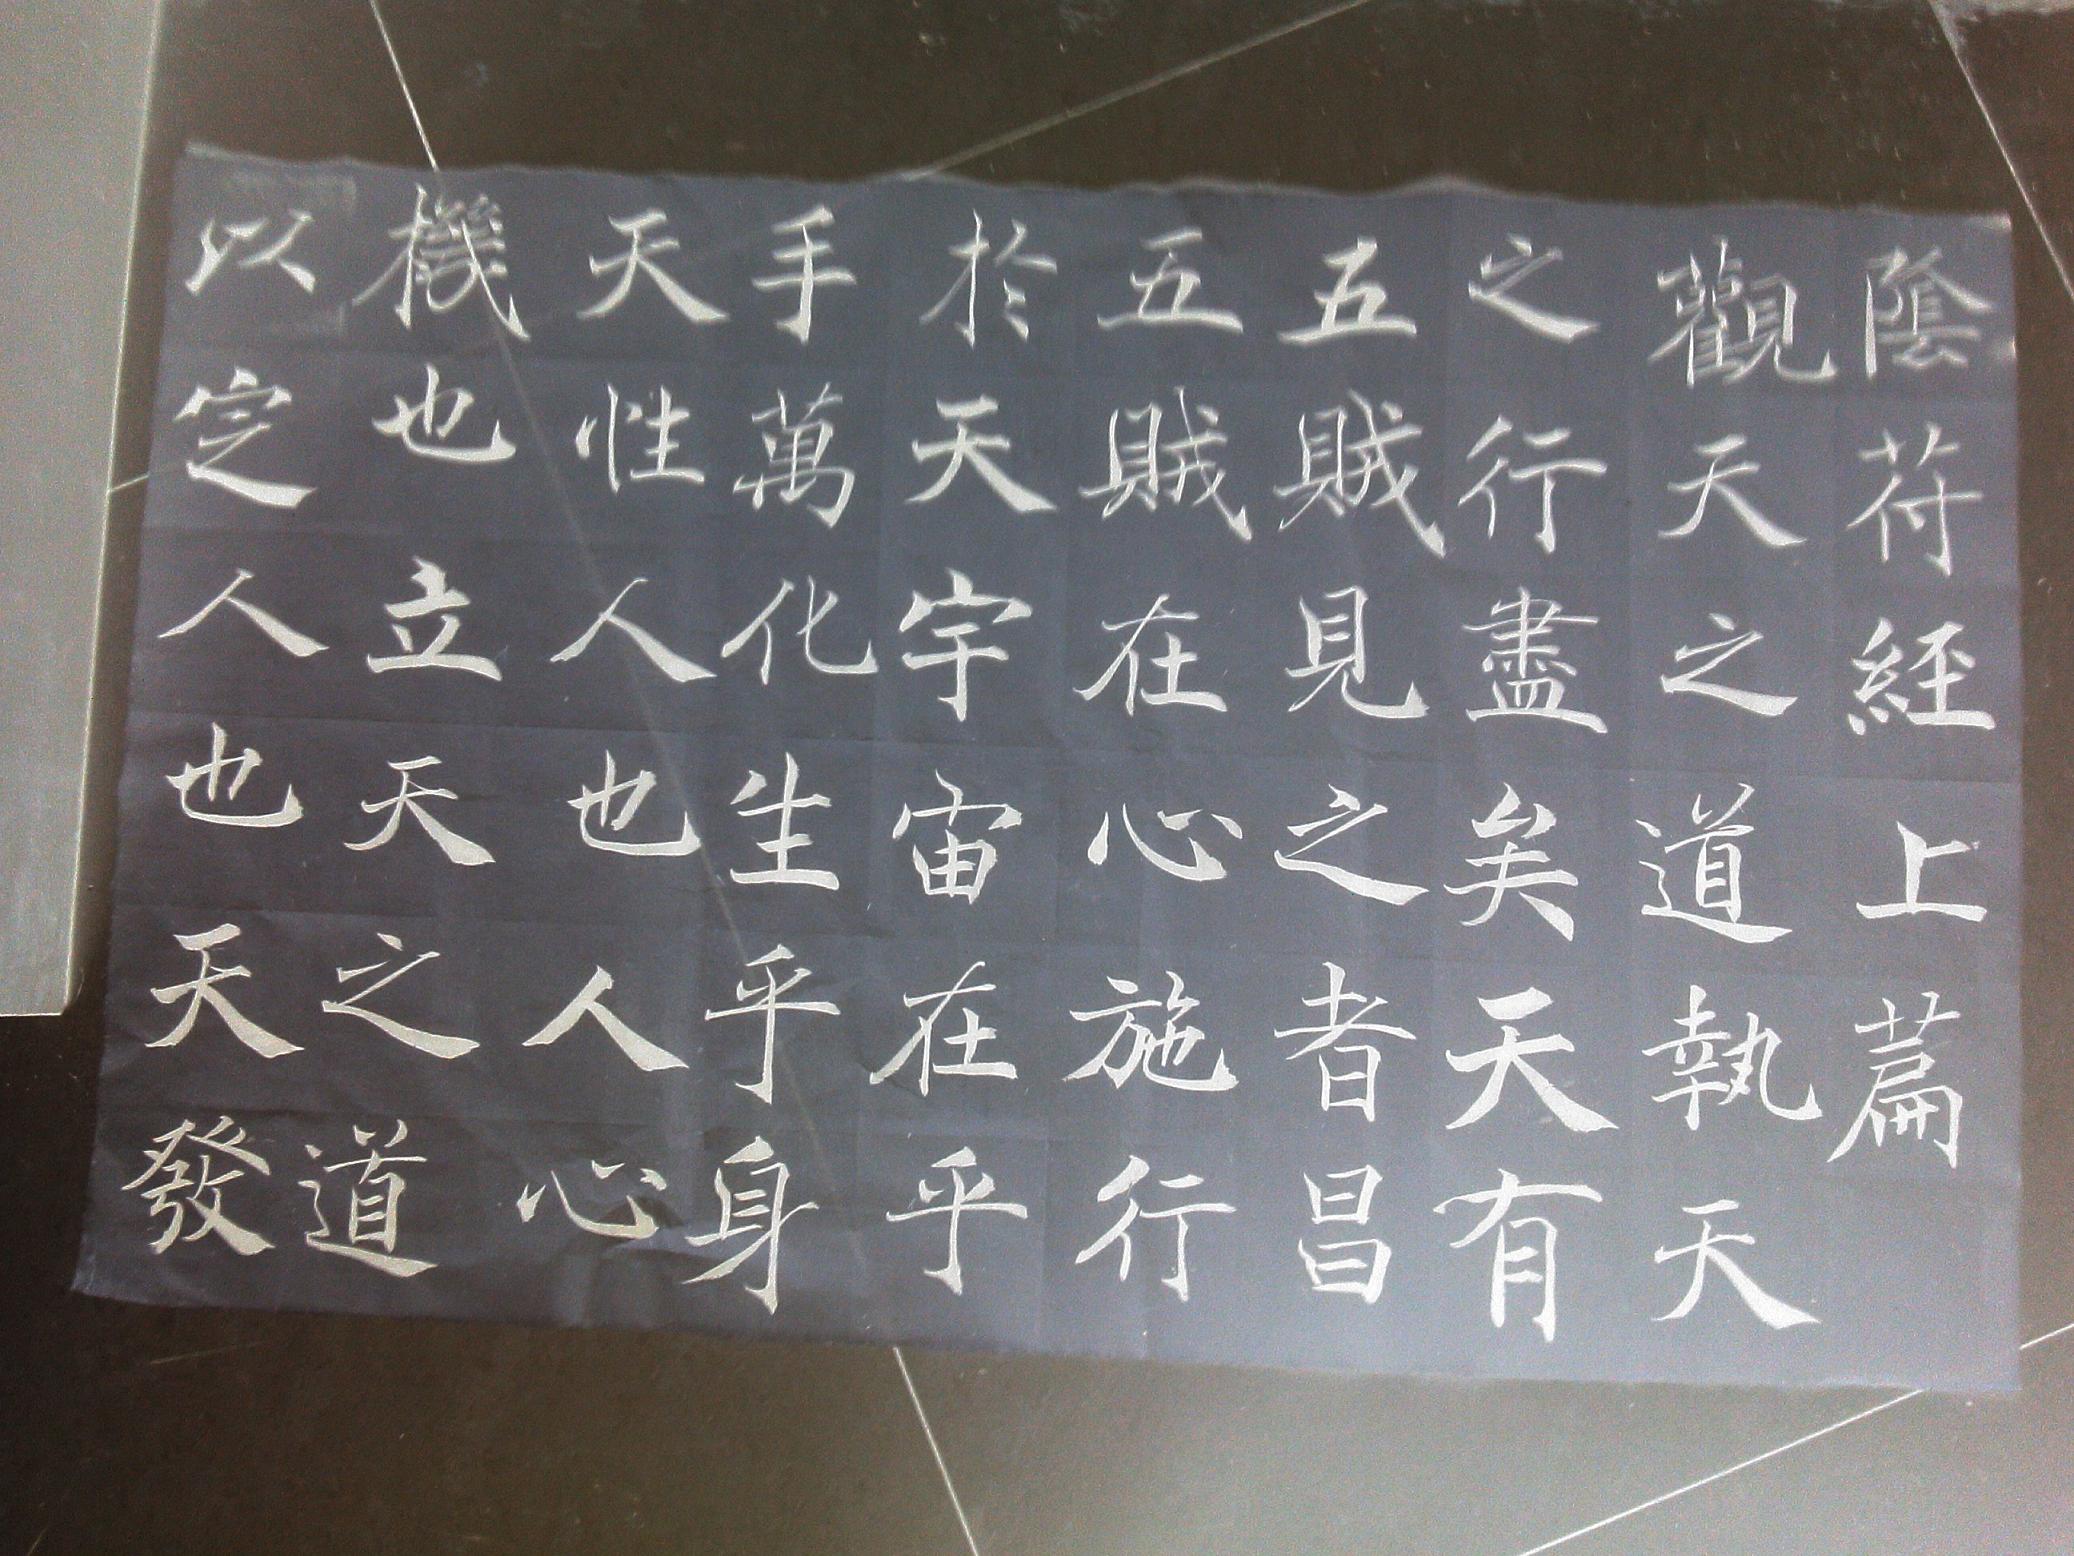 陰符經上篇
觀天之道執天
之行盡矣天有
五賊見之者昌
五賊在心施行
於天宇宙在乎
手萬化生乎身
天性人也人心
機也立天之道
以定人也天發